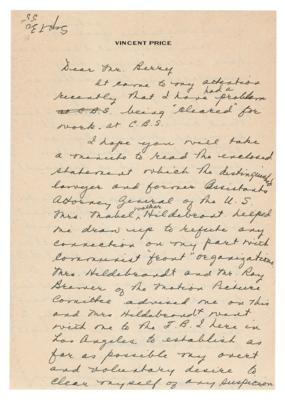 Sept 30
55
VINCENT PRICE
Dear Mr. Berry
It came to my attention
recently that I have had a problem
at C.B.S. being "cleared" for
work at C.B.S.
I hope you will take
a minute to read the enclosed
statement which the distinguished
lawyer and former Assistant
Attorney General of the U.S.
Mrs. Mabel Walker Hildebrandt helped
me draw up to refute any
connection on my part with
Communist "front" organizations.
Mrs Hildebrandt and Mr. Roy
Brewer of the Motion Picture
Comittee advised me on this
and Mrs Hildebrandt went
with me to the F.B.I here in
Los Angeles to establish as
far as possible my overt
and voluntary desire to
clear myself of any suspicion